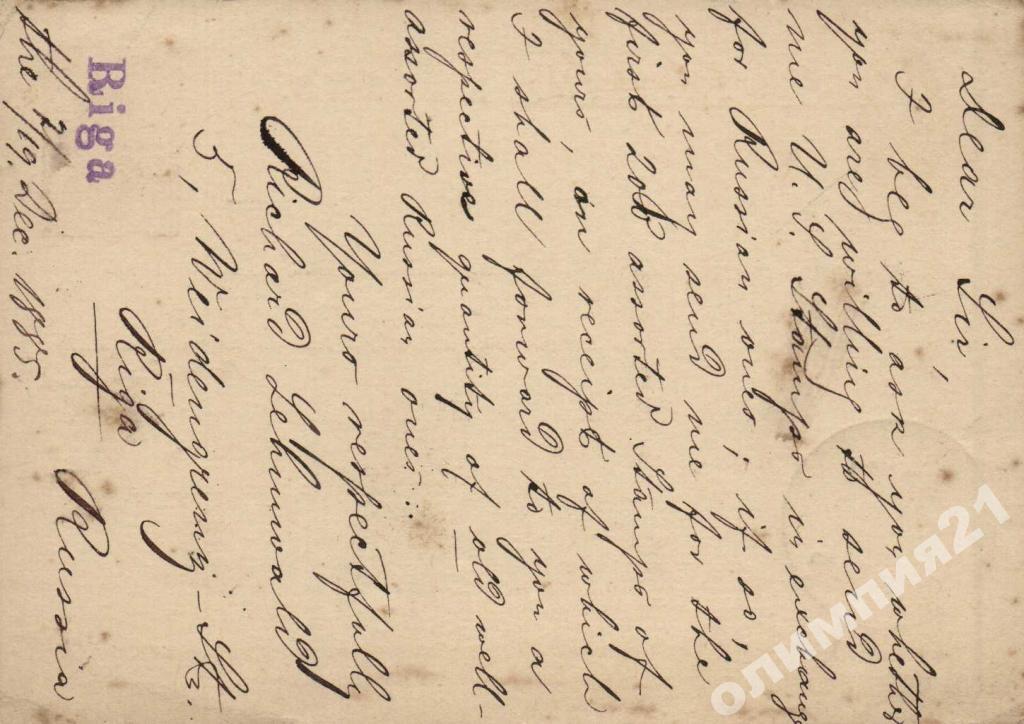 Dear Sir,
I beg to ask you whether
you are willing to send
me U. S. Stamps in exchange
for Russian ones; if so,
you may send me for the
first 200 assorted Stamps of
yours, on receipt of which
I shall forward to you a
respective quantity of old well-
assorted Russian ones.
Yours respectfully
Richard Lehnwald
5, Weidengraus-St.
Riga
Russia
Riga
the 7/19. Dec. 1885.
олимпия21